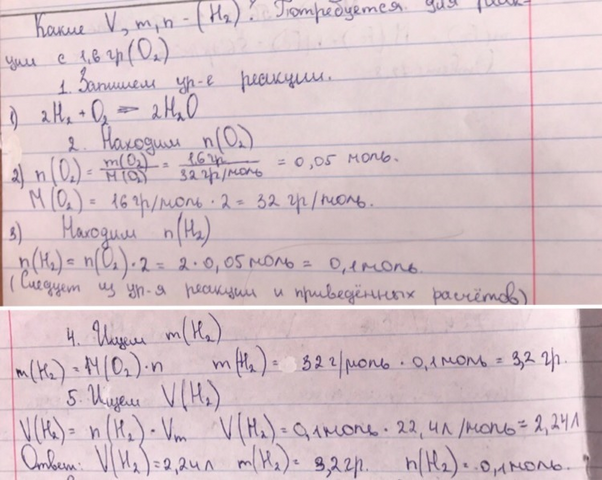 Какие V, m, n - (H₂)? Потребуется для реак-
ции с 1,6 гр (O₂)
1. Запишем ур-е реакции.
1) 2H₂ + O₂ = 2H₂O
2. Находим n(O₂)
2) n(O₂) = m(O₂)/M(O₂) = 1,6 гр/32 гр/моль = 0,05 моль.
M(O₂) = 16 гр/моль · 2 = 32 гр/моль.
3) Находим n(H₂)
n(H₂) = n(O₂) · 2 = 2 · 0,05 моль = 0,1 моль.
(Следует из ур-я реакции и приведённых расчётов)
4. Ищем m(H₂)
m(H₂) = M(O₂) · n m(H₂) = 32 г/моль · 0,1 моль = 3,2 гр.
5. Ищем V(H₂)
V(H₂) = n(H₂) · Vm V(H₂) = 0,1 моль · 22,4 л/моль = 2,24 л
Ответ: V(H₂) = 2,24 л m(H₂) = 3,2 гр. n(H₂) = 0,1 моль.